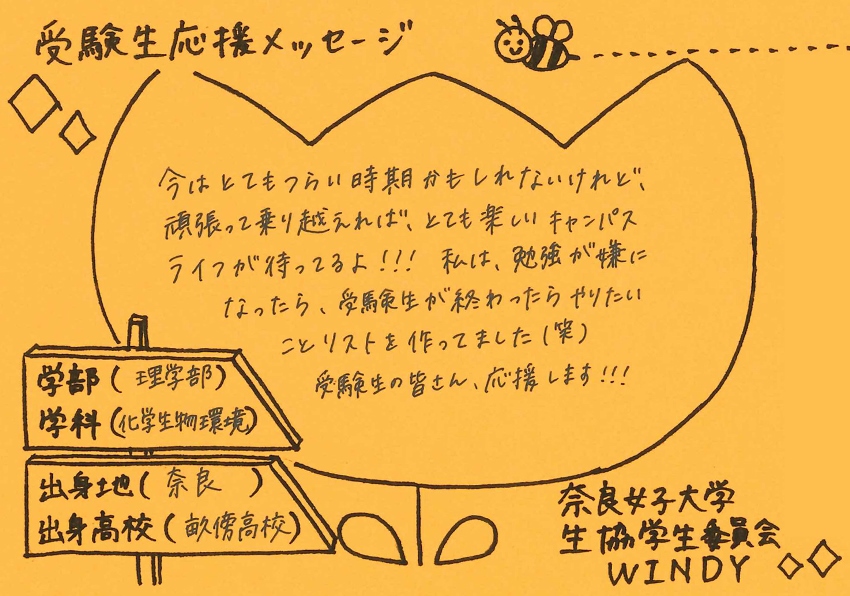 受験生応援メッセージ
今はとてもつらい時期かもしれないけれど、
頑張って乗り越えれば、とても楽しいキャンパス
ライフが待ってるよ!!! 私は、勉強が嫌に
なったら、受験生が終わったらやりたい
ことリストを作ってました(笑)
受験生の皆さん、応援します!!!
学部(理学部)
学科(化学生物環境)
出身地(奈良)
出身高校(畝傍高校)
奈良女子大学
生協学生委員会
WINDY